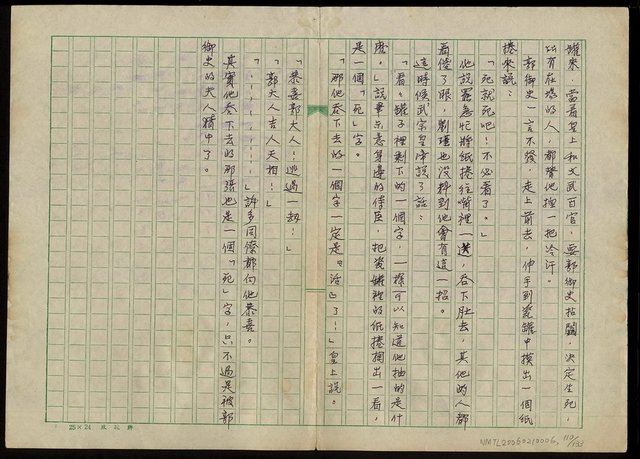 罐來,當着皇上和文武百官,要郭御史拈鬮,決定生死,
所有在場的人,都替他捏一把冷汗。
郭御史一言不發,走上前去,伸手到瓷罐中摸出一個紙
捲來說:
「死就死吧!不必看了。」
他說罷急忙將紙捲往嘴裡一送,吞下肚去,其他的人都
看傻了眼,劉瑾也沒料到他會有這一招。
這時候武宗皇帝說了話:
「看。罐子裡剩下的一個字,一樣可以知道他抽的是什
麼。」說畢示意身邊的侍臣,把瓷罐裡的紙捲掏出一看,
是一個「死」字。
「那他吞下去的一個字一定是『活』了!」皇上說。
「恭喜郭大人!逃過一劫!」
「郭大人吉人天相!」
「!……………」許多同僚都向他恭喜。
其實他吞下去的那張也是一個「死」字,只不過是被郭
御史的夫人猜中了。
25×24
NMTL20060210006, 110/133